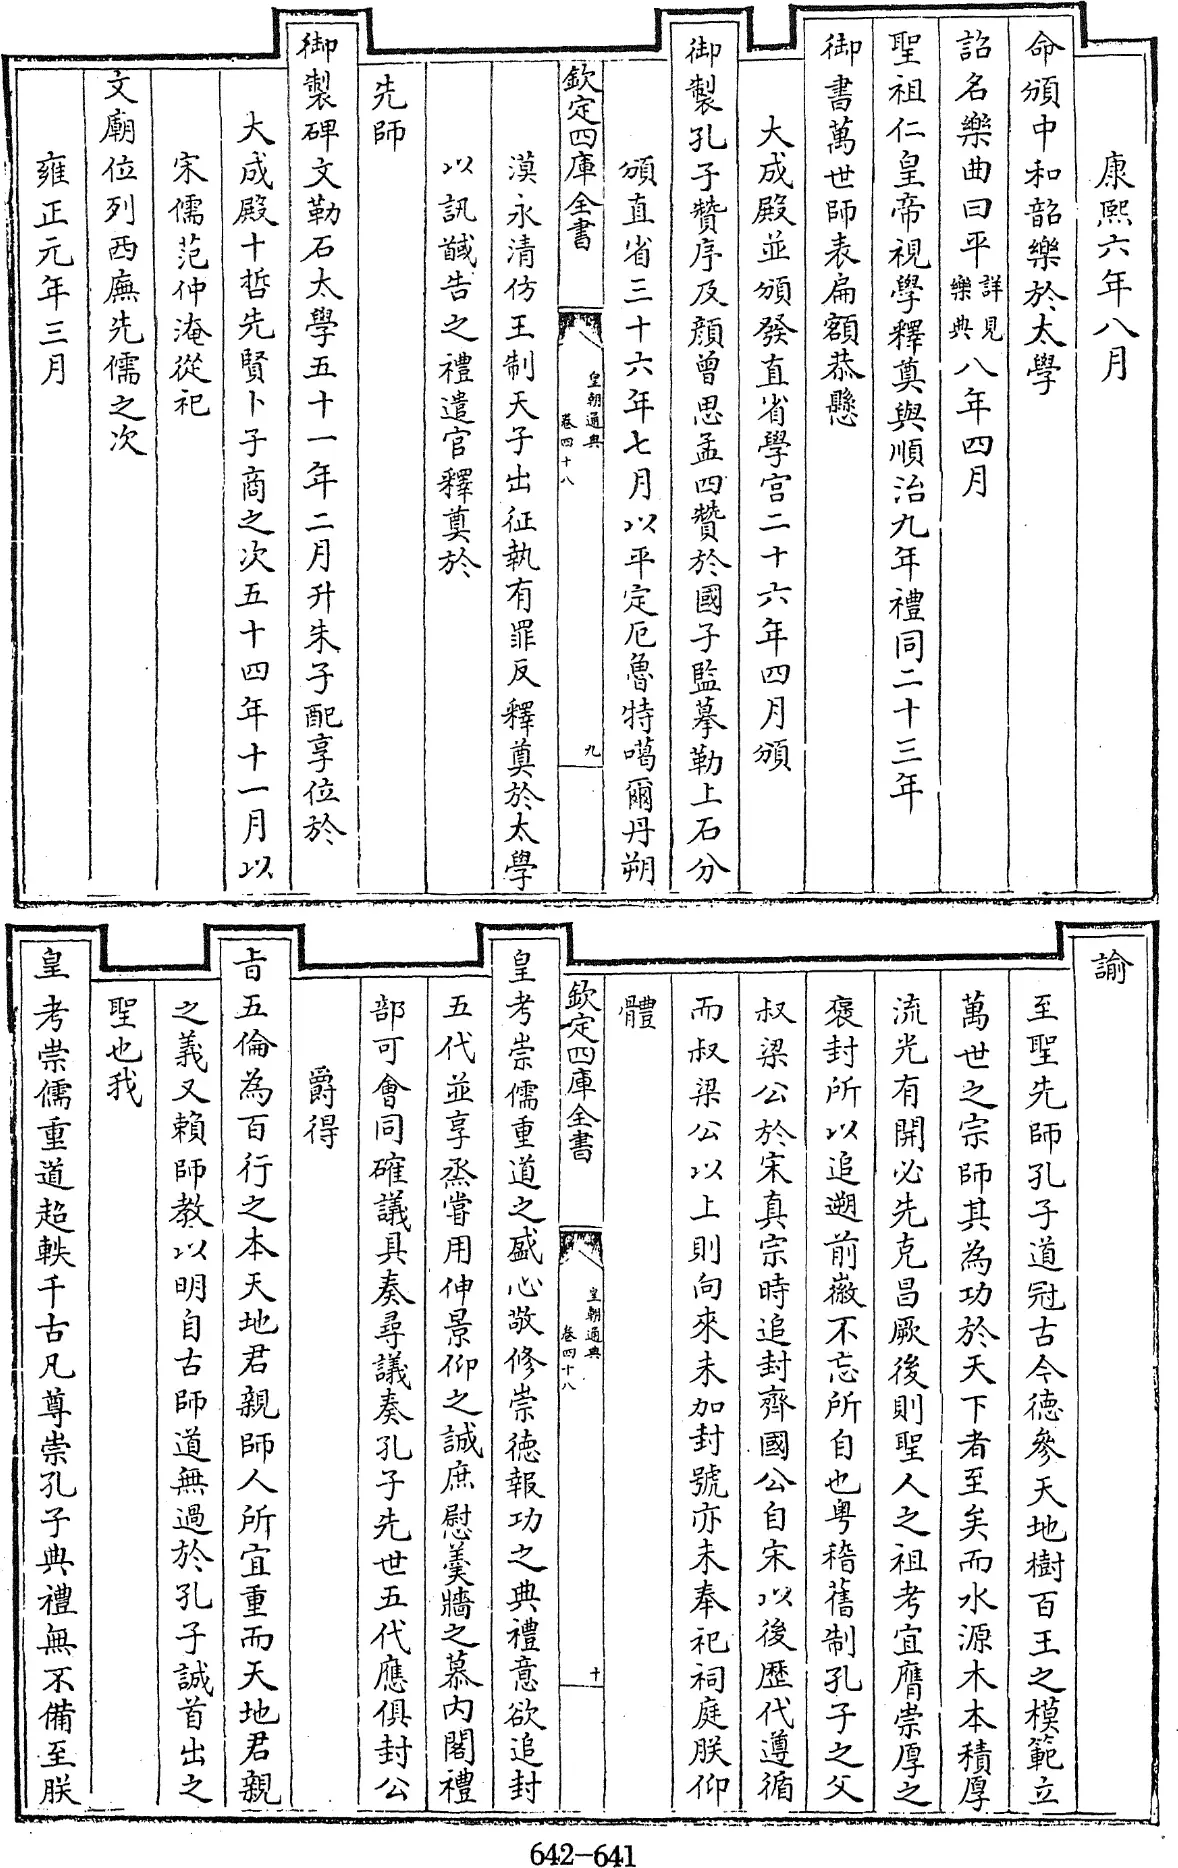 康熙六年八月
命頒中和韶樂於太學
詔名樂曲曰平詳見樂典八年四月
聖祖仁皇帝視學釋奠與順治九年禮同二十三年
御書萬世師表扁額恭懸
大成殿並頒發直省學宮二十六年四月頒
御製孔子贊序及顔曾思孟四贊於國子監摹勒上石分
頒直省三十六年七月以平定厄魯特噶爾丹朔
欽定四庫全書
皇朝通典
卷四十八
九
漠永清仿王制天子出征執有罪反釋奠於太學
以訊馘告之禮遣官釋奠於
先師
御製碑文勒石太學五十一年二月升朱子配享位於
大成殿十哲先賢卜子商之次五十四年十一月以
宋儒范仲淹從祀
文廟位列西廡先儒之次
雍正元年三月
諭
至聖先師孔子道冠古今德參天地樹百王之模範立
萬世之宗師其為功於天下者至矣而水源木本積厚
流光有開必先克昌厥後則聖人之祖考宜膺崇厚之
褒封所以追遡前徽不忘所自也粤稽舊制孔子之父
叔梁公於宋真宗時追封齊國公自宋以後歴代遵循
而叔梁公以上則向來未加封號亦未奉祀祠庭朕仰
體
欽定四庫全書
皇朝通典
卷四十八
十
皇考崇儒重道之盛心敬修崇德報功之典禮意欲追封
五代並享烝嘗用伸景仰之誠庶慰羹牆之慕内閣禮
部可會同確議具奏尋議奏孔子先世五代應俱封公
爵得
旨五倫為百行之本天地君親師人所宜重而天地君親
之義又賴師教以明自古師道無過於孔子誠首出之
聖也我
皇考崇儒重道超軼千古凡尊崇孔子典禮無不備至朕
642-641